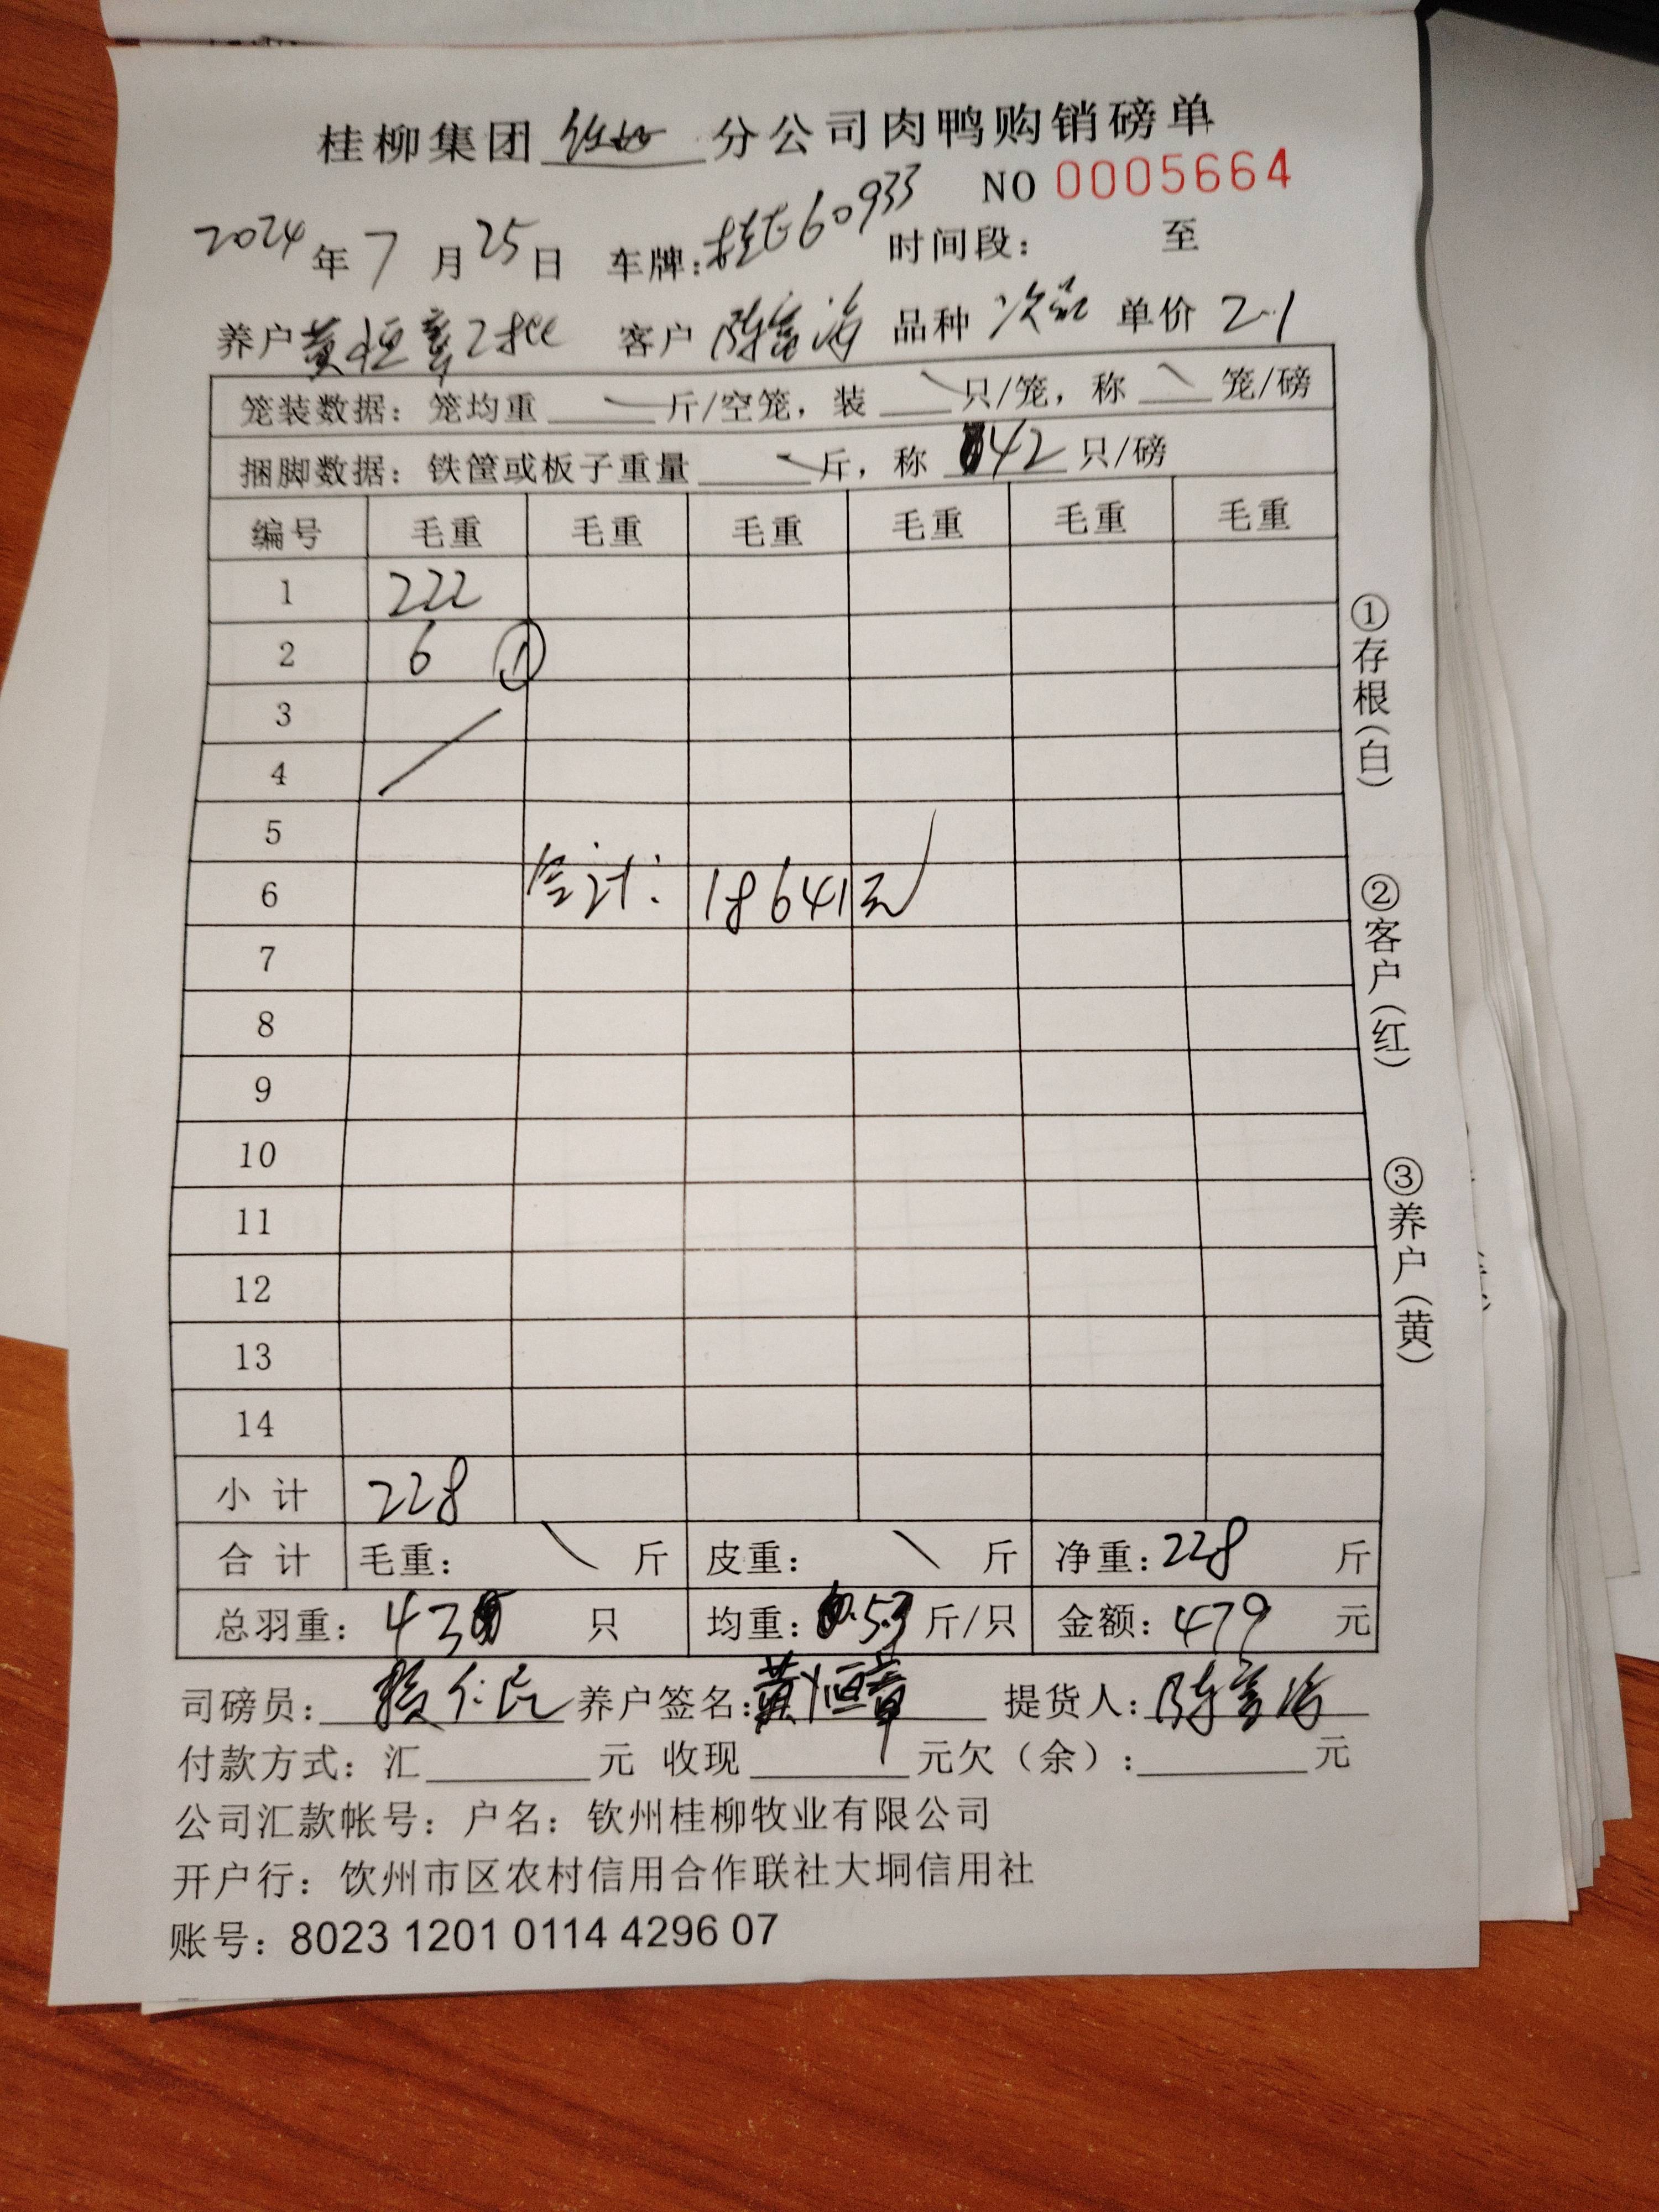 桂柳集团 分公司肉鸭购销磅单
NO 0005664
2024年7月25日 车牌:桂E60933 时间段: 至
养户黄恒章2批 客户 陈富海 品种 次品 单价 2.1
笼装数据: 笼均重 斤/空笼, 装 只/笼, 称 笼/磅
捆脚数据: 铁筐或板子重量 斤, 称 42 只/磅
编号 毛重 毛重 毛重 毛重 毛重 毛重
1 222
2 6 ①
3
4
5
6 合计: 18641元
7
8
9
10
11
12
13
14
小计 228
合计 毛重: 斤 皮重: 斤 净重:228 斤
总羽重: 43 只 均重: 斤/只 金额:479 元
司磅员: 仁民 养户签名:黄恒章 提货人:陈富海
付款方式: 汇 元 收现 元欠(余): 元
公司汇款帐号: 户名: 钦州桂柳牧业有限公司
开户行: 钦州市区农村信用合作联社大垌信用社
账号: 8023 1201 0114 4296 07
①存根(白)
②客户(红)
③养户(黄)